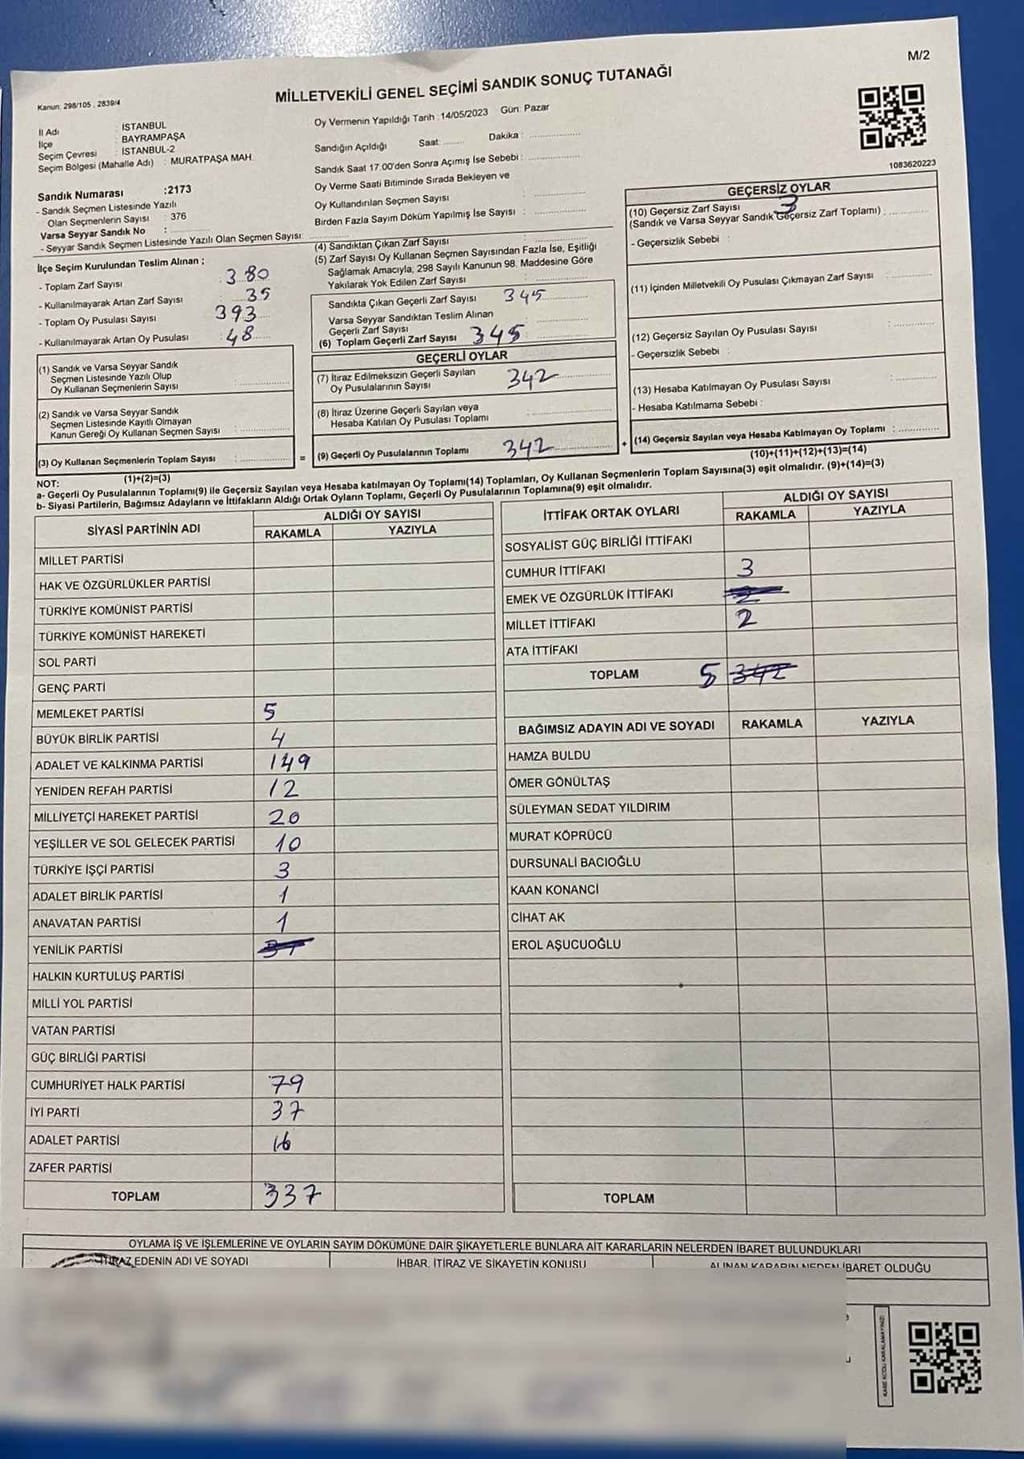 M/2
MİLLETVEKİLİ GENEL SEÇİMİ SANDIK SONUÇ TUTANAĞI
Kanun: 298/105 , 2839/4
İl Adı : İSTANBUL
İlçe : BAYRAMPAŞA
Seçim Çevresi : İSTANBUL-2
Seçim Bölgesi (Mahalle Adı) : MURATPAŞA MAH.
Sandık Numarası :2173
- Sandık Seçmen Listesinde Yazılı
Olan Seçmenlerin Sayısı : 376
Varsa Seyyar Sandık No :
- Seyyar Sandık Seçmen Listesinde Yazılı Olan Seçmen Sayısı:
İlçe Seçim Kurulundan Teslim Alınan ;
- Toplam Zarf Sayısı : 380
- Kullanılmayarak Artan Zarf Sayısı : 35
- Toplam Oy Pusulası Sayısı : 393
- Kullanılmayarak Artan Oy Pusulası : 48
(1) Sandık ve Varsa Seyyar Sandık
Seçmen Listesinde Yazılı Olup
Oy Kullanan Seçmenlerin Sayısı :
(2) Sandık ve Varsa Seyyar Sandık
Seçmen Listesinde Kayıtlı Olmayan
Kanun Gereği Oy Kullanan Seçmen Sayısı :
(3) Oy Kullanan Seçmenlerin Toplam Sayısı :
(1)+(2)=(3)
Oy Vermenin Yapıldığı Tarih :14/05/2023 Gün: Pazar
Sandığın Açıldığı Saat: Dakika :
Sandık Saat 17:00'den Sonra Açımış İse Sebebi :
Oy Verme Saati Bitiminde Sırada Bekleyen ve
Oy Kullandırılan Seçmen Sayısı :
Birden Fazla Sayım Döküm Yapılmış İse Sayısı :
(4) Sandıktan Çıkan Zarf Sayısı :
(5) Zarf Sayısı Oy Kullanan Seçmen Sayısından Fazla İse, Eşitliği
Sağlamak Amacıyla, 298 Sayılı Kanunun 98. Maddesine Göre
Yakılarak Yok Edilen Zarf Sayısı :
Sandıkta Çıkan Geçerli Zarf Sayısı : 345
Varsa Seyyar Sandıktan Teslim Alınan
Geçerli Zarf Sayısı :
(6) Toplam Geçerli Zarf Sayısı : 345
GEÇERLİ OYLAR
(7) İtiraz Edilmeksizin Geçerli Sayılan
Oy Pusulalarının Sayısı : 342
(8) İtiraz Üzerine Geçerli Sayılan veya
Hesaba Katılan Oy Pusulası Toplamı :
= (9) Geçerli Oy Pusulalarının Toplamı : 342 +
1083620223
GEÇERSİZ OYLAR
(10) Geçersiz Zarf Sayısı 3
(Sandık ve Varsa Seyyar Sandık Geçersiz Zarf Toplamı) :
- Geçersizlik Sebebi :
(11) İçinden Milletvekili Oy Pusulası Çıkmayan Zarf Sayısı :
(12) Geçersiz Sayılan Oy Pusulası Sayısı :
- Geçersizlik Sebebi :
(13) Hesaba Katılmayan Oy Pusulası Sayısı :
- Hesaba Katılmama Sebebi :
(14) Geçersiz Sayılan veya Hesaba Katılmayan Oy Toplamı :
(10)+(11)+(12)+(13)=(14)
NOT:
a- Geçerli Oy Pusulalarının Toplamı(9) ile Geçersiz Sayılan veya Hesaba katılmayan Oy Toplamı(14) Toplamları, Oy Kullanan Seçmenlerin Toplam Sayısına(3) eşit olmalıdır. (9)+(14)=(3)
b- Siyasi Partilerin, Bağımsız Adayların ve İttifakların Aldığı Ortak Oyların Toplamı, Geçerli Oy Pusulalarının Toplamına(9) eşit olmalıdır.
SİYASİ PARTİNİN ADI ALDIĞI OY SAYISI
RAKAMLA YAZIYLA
MİLLET PARTİSİ
HAK VE ÖZGÜRLÜKLER PARTİSİ
TÜRKİYE KOMÜNİST PARTİSİ
TÜRKİYE KOMÜNİST HAREKETİ
SOL PARTİ
GENÇ PARTİ
MEMLEKET PARTİSİ 5
BÜYÜK BİRLİK PARTİSİ 4
ADALET VE KALKINMA PARTİSİ 149
YENİDEN REFAH PARTİSİ 12
MİLLİYETÇİ HAREKET PARTİSİ 20
YEŞİLLER VE SOL GELECEK PARTİSİ 10
TÜRKİYE İŞÇİ PARTİSİ 3
ADALET BİRLİK PARTİSİ 1
ANAVATAN PARTİSİ 1
YENİLİK PARTİSİ
HALKIN KURTULUŞ PARTİSİ
MİLLİ YOL PARTİSİ
VATAN PARTİSİ
GÜÇ BİRLİĞİ PARTİSİ
CUMHURİYET HALK PARTİSİ 79
İYİ PARTİ 37
ADALET PARTİSİ 16
ZAFER PARTİSİ
TOPLAM 337
İTTİFAK ORTAK OYLARI ALDIĞI OY SAYISI
RAKAMLA YAZIYLA
SOSYALİST GÜÇ BİRLİĞİ İTTİFAKI
CUMHUR İTTİFAKI 3
EMEK VE ÖZGÜRLÜK İTTİFAKI 2
MİLLET İTTİFAKI 2
ATA İTTİFAKI
TOPLAM 5 342
BAĞIMSIZ ADAYIN ADI VE SOYADI RAKAMLA YAZIYLA
HAMZA BULDU
ÖMER GÖNÜLTAŞ
SÜLEYMAN SEDAT YILDIRIM
MURAT KÖPRÜCÜ
DURSUNALİ BACIOĞLU
KAAN KONANCİ
CİHAT AK
EROL AŞUCUOĞLU
TOPLAM
OYLAMA İŞ VE İŞLEMLERİNE VE OYLARIN SAYIM DÖKÜMÜNE DAİR ŞİKAYETLERLE BUNLARA AİT KARARLARIN NELERDEN İBARET BULUNDUKLARI
İTİRAZ EDENİN ADI VE SOYADI İHBAR, İTİRAZ VE ŞİKAYETİN KONUSU ALINAN KARARIN NEDEN İBARET OLDUĞU